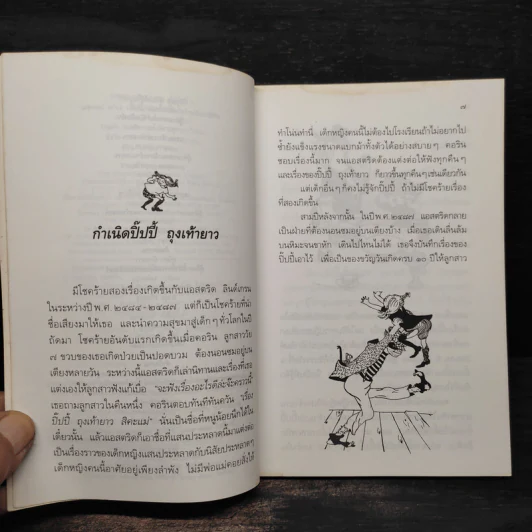 กำเนิดปิ๊ปปี้ ถุงเท้ายาว
มีโชคร้ายสองเรื่องเกิดขึ้นกับแอสตริด ลินด์เกรน
ในระหว่างปี พ.ศ. ๒๔๘๔-๒๔๘๗ แต่ก็เป็นโชคร้ายที่นำ
ชื่อเสียงมาให้เธอ และนำความสุขมาสู่เด็กๆ ทั่วโลกในปี
ถัดมา โชคร้ายอันดับแรกเกิดขึ้นเมื่อคอริน ลูกสาววัย
๗ ขวบของเธอเกิดป่วยเป็นปอดบวม ต้องนอนซมอยู่บน
เตียงหลายวัน ระหว่างนี้แอสตริดก็เล่านิทานและเรื่องที่เธอ
แต่งเองให้ลูกสาวฟังแก้เบื่อ "จะฟังเรื่องอะไรดีล่ะจ๊ะคราวนี้"
เธอถามลูกสาวในคืนหนึ่ง คอรินตอบทันทีทันควัน "เรื่อง
ปิ๊ปปี้ ถุงเท้ายาว สิคะแม่" นั่นเป็นชื่อที่หนูน้อยนึกได้ใน
เดี๋ยวนั้น แล้วแอสตริดก็เอาชื่อที่แสนประหลาดนี้มาแต่งต่อ
เป็นเรื่องราวของเด็กหญิงแสนประหลาดกับนิสัยประหลาดๆ
เด็กหญิงคนนี้อาศัยอยู่เพียงลำพัง ไม่มีพ่อแม่คอยสั่งให้
๗
ทำโน่นทำนี่ เด็กหญิงคนนี้ไม่ต้องไปโรงเรียนถ้าไม่อยากไป
ซ้ำยังแข็งแรงขนาดแบกม้าทั้งตัวได้อย่างสบายๆ คอริน
ชอบเรื่องนี้มาก จนแอสตริดต้องแต่งต่อให้ฟังทุกคืนๆ
และเรื่องของปิ๊ปปี้ ถุงเท้ายาว ก็ยาวขึ้นทุกคืนๆ เช่นเดียวกัน
แต่เด็กอื่นๆ ก็คงไม่รู้จักปิ๊ปปี้ ถ้าไม่มีโชคร้ายเรื่อง
ที่สองเกิดขึ้น
สามปีหลังจากนั้น ในปี พ.ศ. ๒๔๘๗ แอสตริดกลาย
เป็นฝ่ายที่ต้องนอนซมอยู่บนเตียงบ้าง เมื่อเธอเดินลื่นล้ม
บนหิมะจนขาหัก เดินไปไหนไม่ได้ เธอจึงบันทึกเรื่องของ
ปิ๊ปปี้เอาไว้ เพื่อเป็นของขวัญวันเกิดครบ ๑๐ ปีให้ลูกสาว